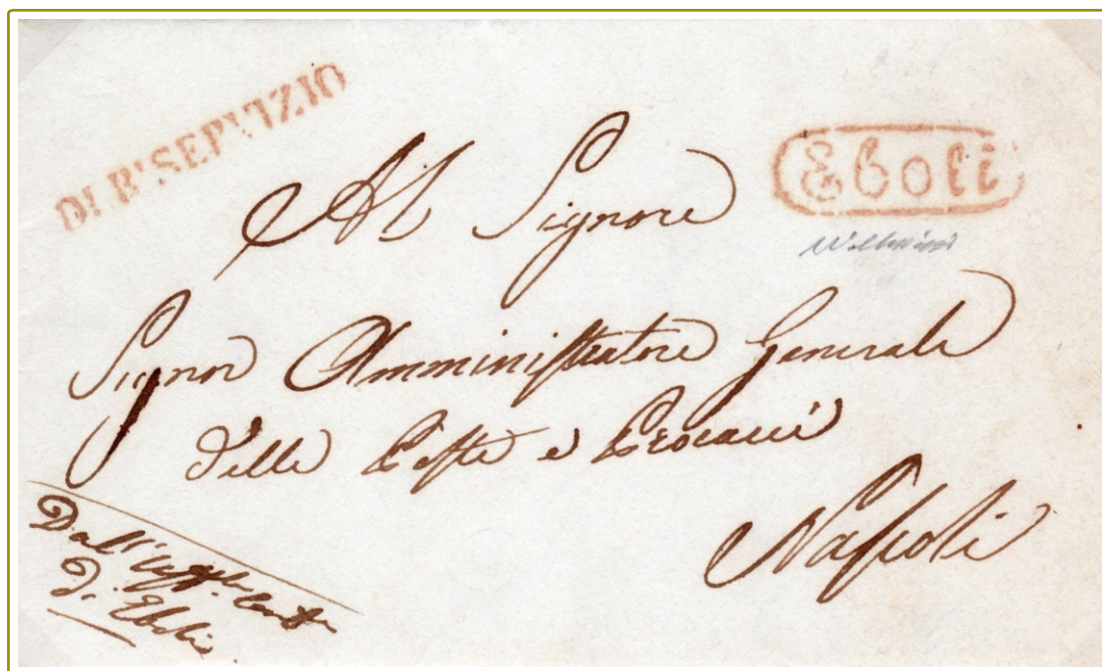 DI R! SERVIZIO
Eboli
Al Signore
Signor Amministratore Generale
delle Poste e Procacci
Napoli
Dall'
di Eboli